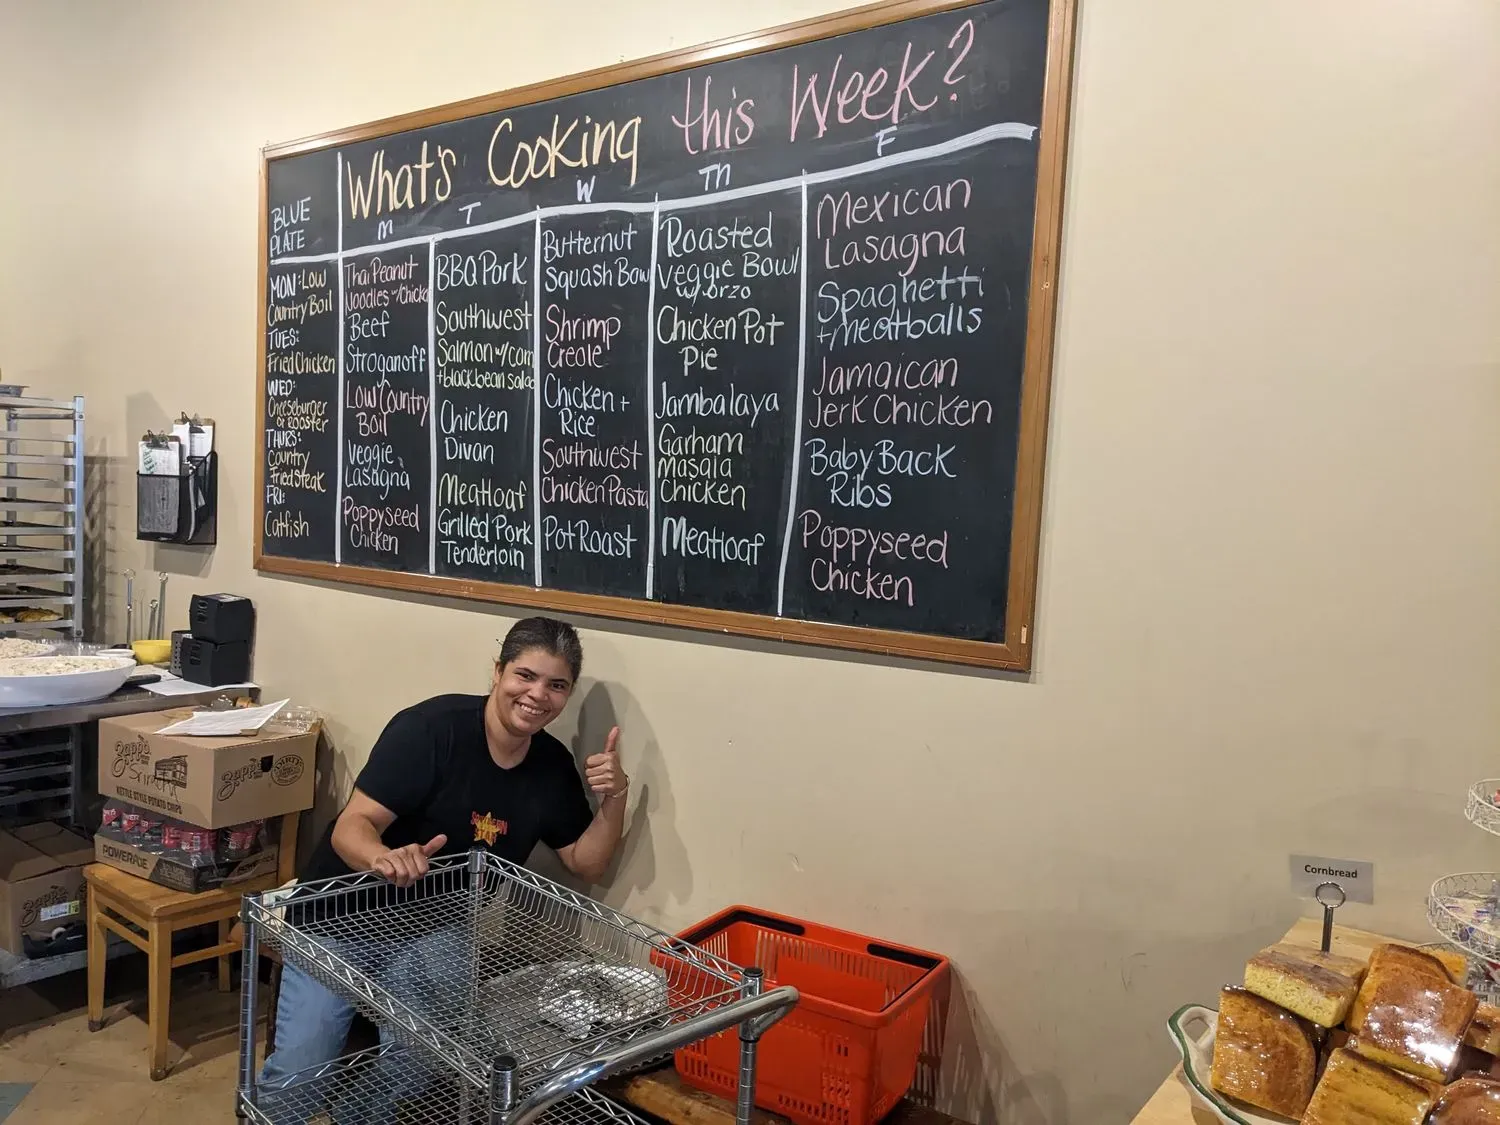 What's Cooking this Week?
BLUE
PLATE
MON: Low
Country Boil
TUES:
Fried Chicken
WED:
Cheeseburger
or Rooster
THURS:
Country
Fried Steak
FRI:
Catfish
M
Thai Peanut
Noodles w/Chicke
Beef
Stroganoff
Low Country
Boil
Veggie
Lasagna
Poppyseed
Chicken
T
BBQ Pork
Southwest
Salmon w/corn
+black bean salad
Chicken
Divan
Meatloaf
Grilled Pork
Tenderloin
W
Butternut
Squash Bowl
Shrimp
Creole
Chicken +
Rice
Southwest
Chicken Pasta
Pot Roast
Th
Roasted
Veggie Bowl
w/orzo
Chicken Pot
Pie
Jambalaya
Garham
Masala
Chicken
Meatloaf
F
Mexican
Lasagna
Spaghetti
+meatballs
Jamaican
Jerk Chicken
Baby Back
Ribs
Poppyseed
Chicken
Zapp's
Zapp's
KETTLE STYLE POTATO CHIPS
POWERADE
Zapp's
Cornbread